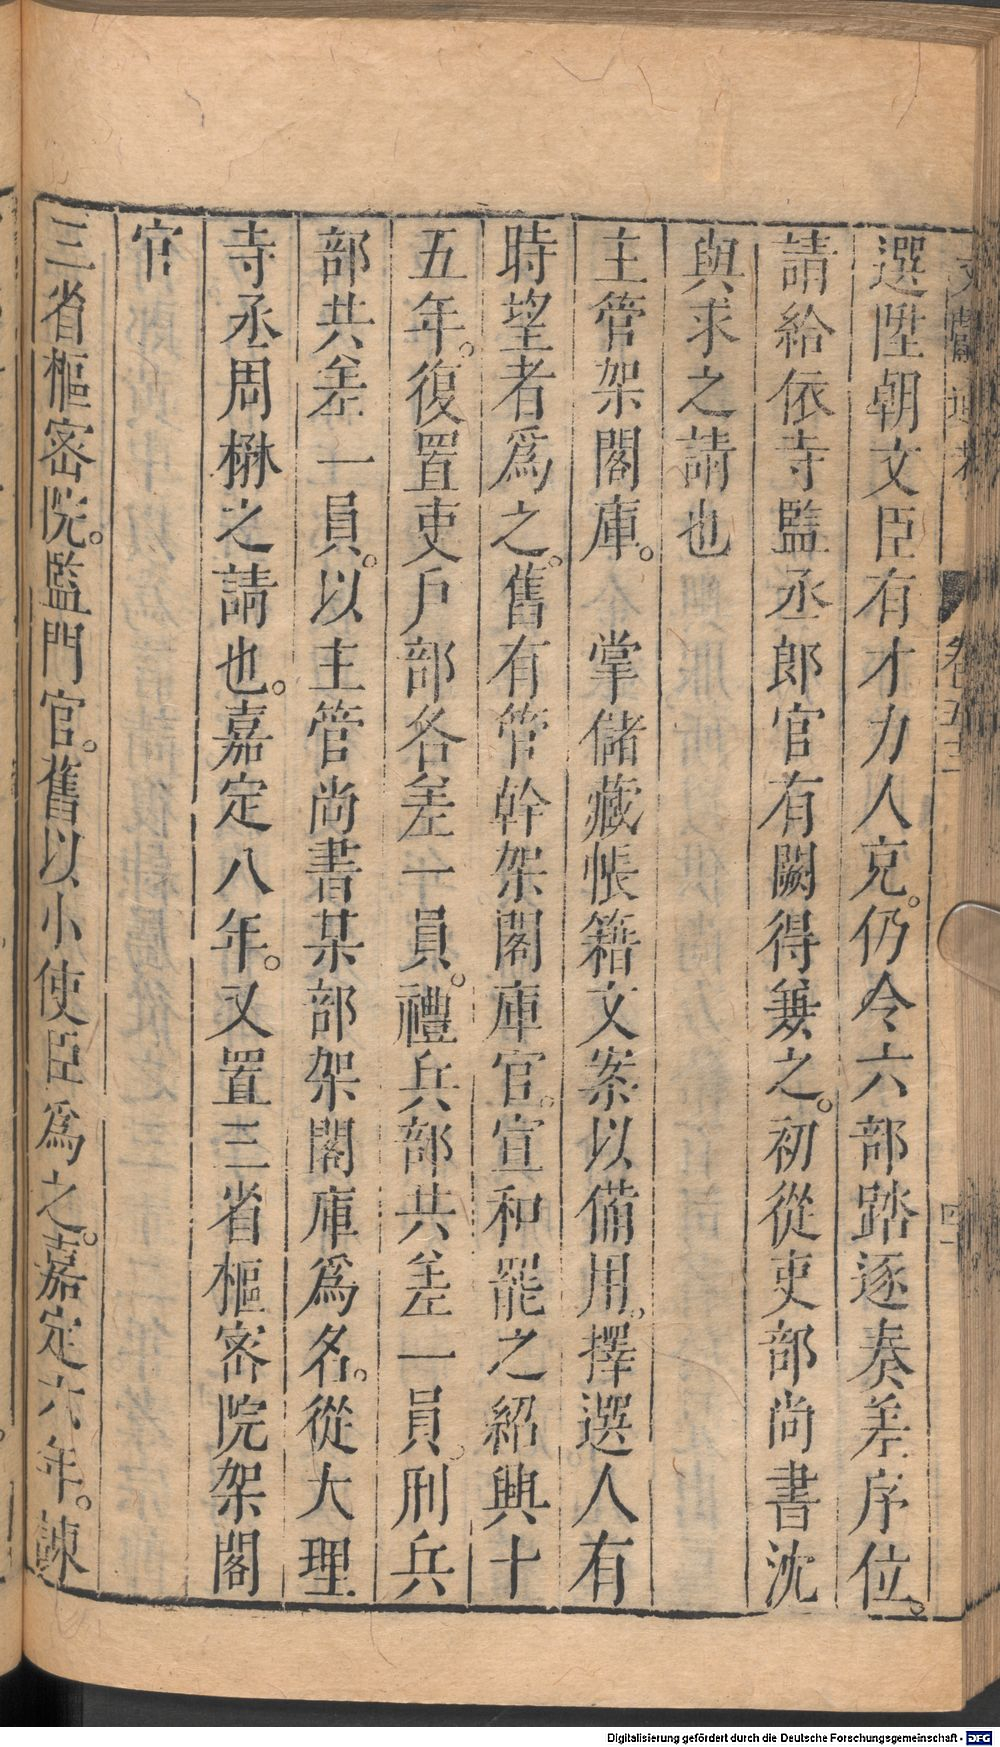 選陞朝文臣有才力人克。仍令六部踏逐奏差序位。
請給依寺監丞郎官有闕得兼之。初從吏部尚書沈
與求之請也
主管架閣庫。　掌儲藏帳籍文案以備用。擇選人有
時望者爲之。舊有管幹架閣庫官。宣和罷之紹興十
五年。復置吏戶部各差一員。禮兵部共差一員。刑兵
部共差一員。以主管尚書某部架閣庫爲名。從大理
寺丞周楙之請也。嘉定八年。又置三省樞密院架閣
官
三省樞密院。監門官。舊以小使臣爲之。嘉定六年。諫
卷五十二
Digitalisierung gefördert durch die Deutsche Forschungsgemeinschaft - DFG